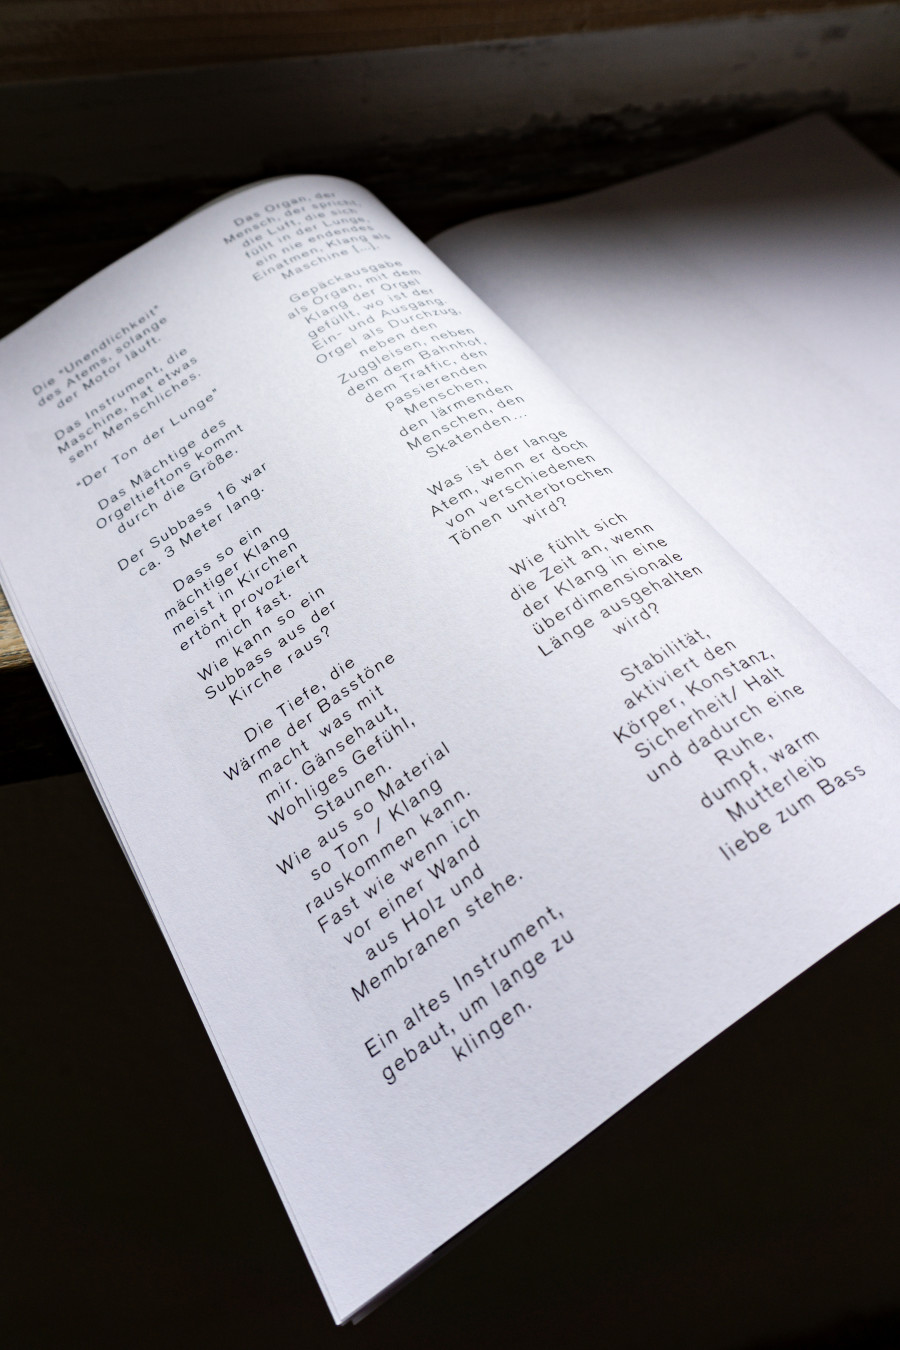 Die "Unendlichkeit"
des Atems, solange
der Motor läuft.
Das Instrument, die
Maschine, hat etwas
sehr Menschliches.
"Der Ton der Lunge"
Das Mächtige des
Orgeltieftons kommt
durch die Größe.
Der Subbass 16 war
ca. 3 Meter lang.
Dass so ein
mächtiger Klang
meist in Kirchen
ertönt provoziert
mich fast.
Wie kann so ein
Subbass aus der
Kirche raus?
Die Tiefe, die
Wärme der Basstöne
macht was mit
mir. Gänsehaut,
Wohliges Gefühl,
Staunen.
Wie aus so Material
so Ton / Klang
rauskommen kann.
Fast wie wenn ich
vor einer Wand
aus Holz und
Membranen stehe.
Ein altes Instrument,
gebaut, um lange zu
klingen.
Das Organ, der
Mensch, der spricht,
die Luft, die sich
füllt in der Lunge,
ein nie endendes
Einatmen, Klang als
Maschine [...].
Gepäckausgabe
als Organ, mit dem
Klang der Orgel
gefüllt, wo ist der
Ein- und Ausgang.
Orgel als Durchzug,
neben den
Zuggleisen, neben
dem dem Bahnhof,
dem Traffic, den
passierenden
Menschen,
den lärmenden
Menschen, den
Skatenden...
Was ist der lange
Atem, wenn er doch
von verschiedenen
Tönen unterbrochen
wird?
Wie fühlt sich
die Zeit an, wenn
der Klang in eine
überdimensionale
Länge ausgehalten
wird?
Stabilität,
aktiviert den
Körper, Konstanz,
Sicherheit/ Halt
und dadurch eine
Ruhe,
dumpf, warm
Mutterleib
liebe zum Bass